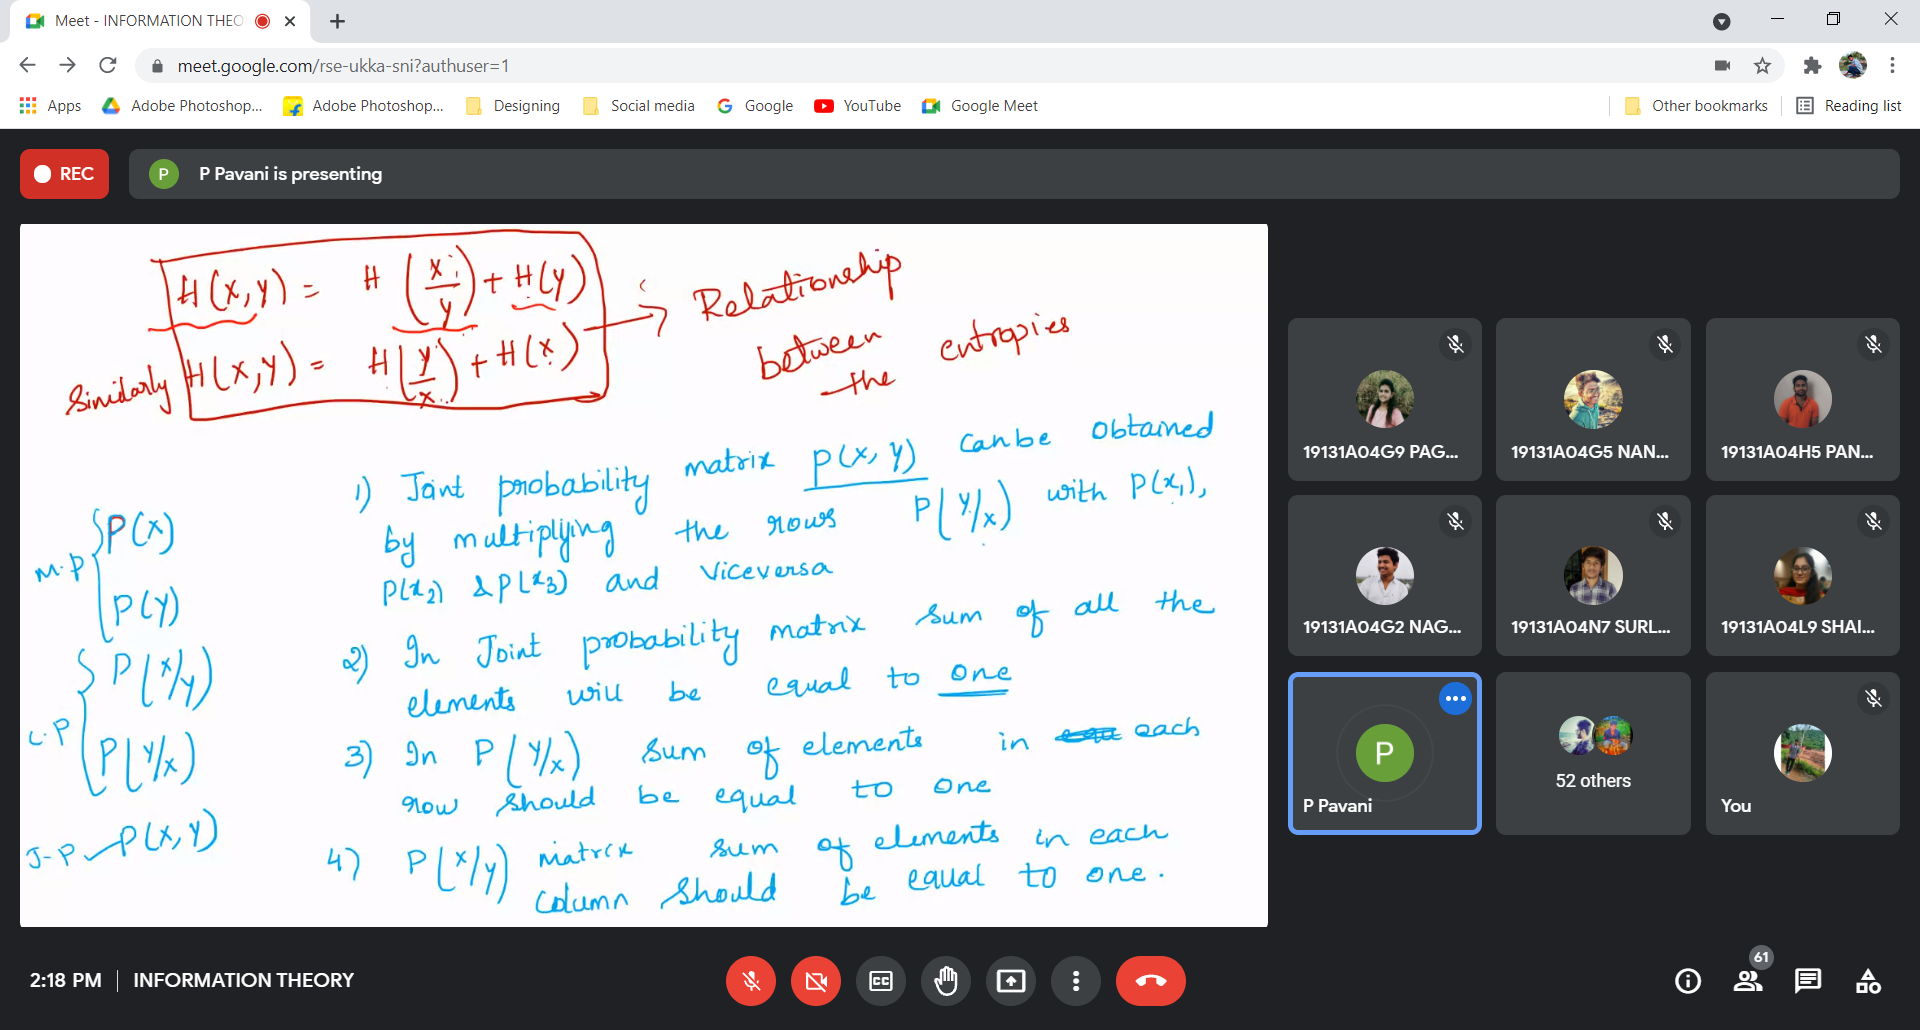 Meet - INFORMATION THEO
meet.google.com/rse-ukka-sni?authuser=1
Apps Adobe Photoshop... Adobe Photoshop... Designing Social media Google YouTube Google Meet Other bookmarks Reading list
REC P P Pavani is presenting
H(x,y) = H(x/y) + H(y) → Relationship
Similarly H(x,y) = H(y/x) + H(x) between the entropies
1) Joint probability matrix P(x,y) can be obtained
by multiplying the rows P(y/x) with P(x1),
P(x2) & P(x3) and Viceversa
2) In Joint probability matrix sum of all the
elements will be equal to one
3) In P(y/x) sum of elements in each
row should be equal to one
4) P(x/y) matrix sum of elements in each
column should be equal to one.
M.P P(x)
P(y)
C.P P(x/y)
P(y/x)
J-P P(x,y)
19131A04G9 PAG... 19131A04G5 NAN... 19131A04H5 PAN...
19131A04G2 NAG... 19131A04N7 SURL... 19131A04L9 SHAI...
P
P Pavani 52 others You
2:18 PM INFORMATION THEORY
CC
61